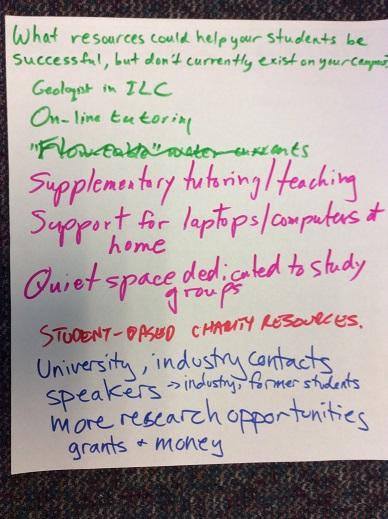 What resources could help your students be
successful, but don't currently exist on your campus?
Geologist in ILC
On-line tutoring
Supplementary tutoring/teaching
Support for laptops/computers at
home
Quiet space dedicated to study
groups
STUDENT-BASED CHARITY RESOURCES.
University, industry contacts
speakers → industry, former students
more research opportunities
grants + money